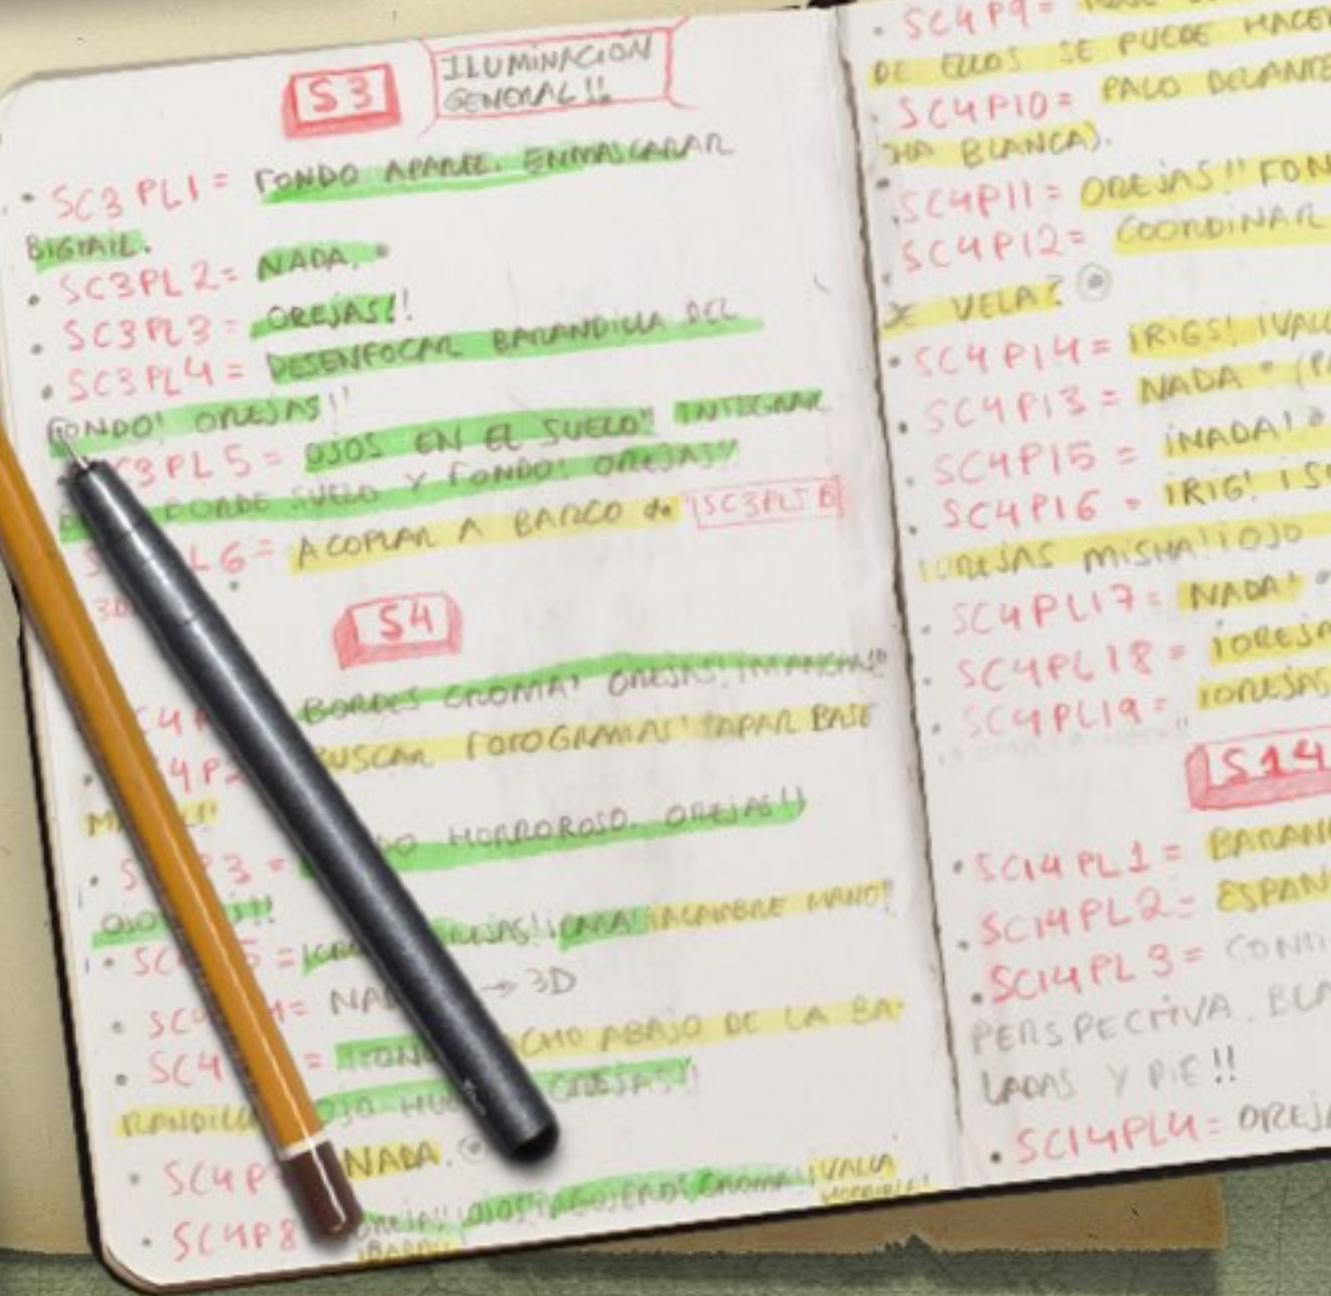 S3
ILUMINACIÓN
GENERAL!!
· SC3 PL1 = FONDO APARTE. ENMASCARAR
BIGTAIL.
· SC3PL2 = NADA.
· SC3PL3 = OREJAS!!
· SC3PL4 = DESENFOCAR BARANDILLA DEL
FONDO! OREJAS!!
C3PL5 = OJOS EN EL SUELO!! INTEGRAR
BORDE SUELO Y FONDO! OREJAS!!
L6 = ACOPLAR A BARCO de SC3PL5B
3D
S4
C4P BORDES CROMA! OREJAS! ¡MANCHAS!!
· 4P2 BUSCAR FOTOGRAMAS! TAPAR BASE
· S P3 = HORROROSO. OREJAS!!
OJO
· SC 5 = OREJAS!! ¡CARA! ¡ALAMBRE MANO!!
· SC4 = NADA → 3D
· SC4 = CHO ABAJO DE LA BA-
RANDILLA OJO OREJAS!!
· SC4P NADA.
· SC4P8 OREJA!! ¡OJOS! ¡AGUJEROS! CROMA! ¡VALLA
HORRIBLE!
· SC4P9 =
DE ELLOS SE PUEDE HACER
· SC4P10 = PALO DELANTE
HA BLANCA).
· SC4P11 = OREJAS!! FON
· SC4P12 = COORDINAR
DE VELA?
· SC4P14 = ¡RIGS! ¡VALL
· SC4P13 = NADA (P
· SC4P15 = ¡NADA!
· SC4P16 = ¡RIG! ¡S
¡OREJAS MISHA! ¡OJO
· SC4PL17 = NADA!
· SC4PL18 = ¡OREJA
· SC4PL19 = ¡OREJAS
S14
· SC14PL1 = BARAN
· SC14PL2 = ESPAN
· SC14PL3 =
PERSPECTIVA. BLA
LADAS Y PIE!!
· SC14PL4 = OREJA